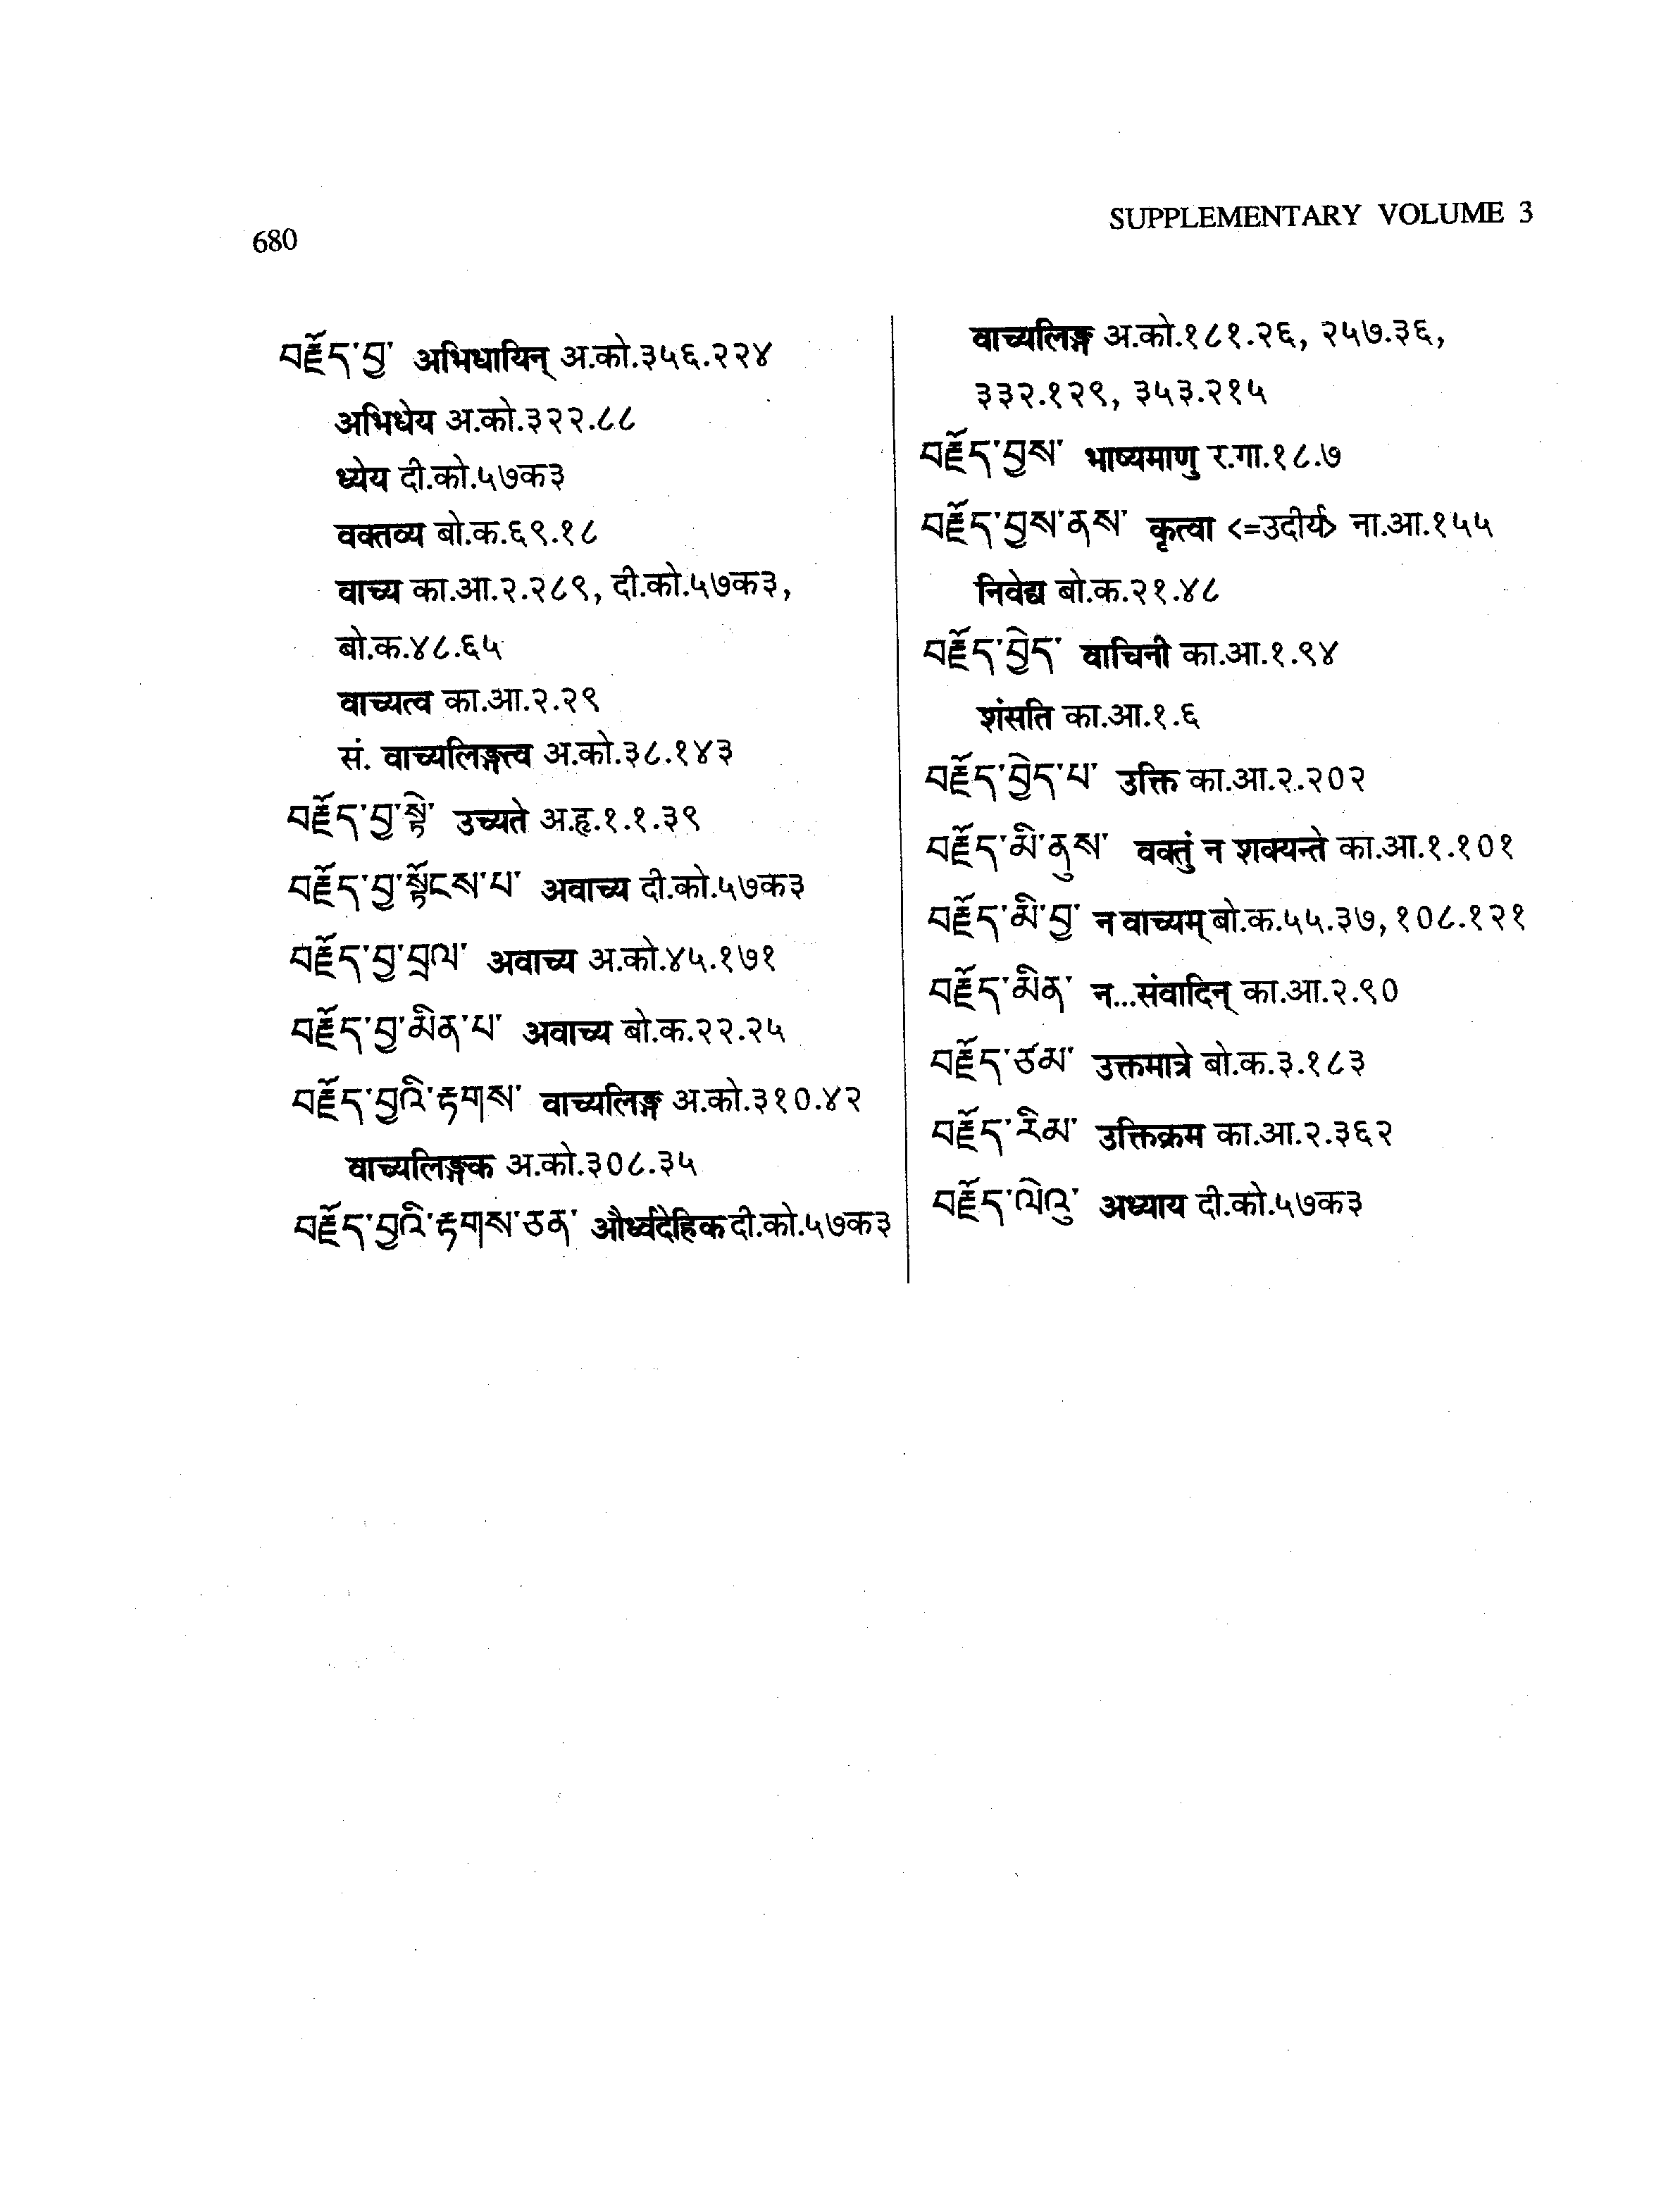 680
SUPPLEMENTARY VOLUME 3
བརྗོད་བྱ་ अभिधायिन् अ.को.३५६.२२४
अभिधेय अ.को.३२२.८८
ध्येय दी.को.५७क३
वक्तव्य बो.क.६९.१८
वाच्य का.आ.२.२८९, दी.को.५७क३,
बो.क.४८.६५
वाच्यत्व का.आ.२.२९
सं. वाच्यलिङ्गत्व अ.को.३८.१४३
བརྗོད་བྱ་སྟེ་ उच्यते अ.हृ.१.१.३९
བརྗོད་བྱ་སྟོངས་པ་ अवाच्य दी.को.५७क३
བརྗོད་བྱ་བྲལ་ अवाच्य अ.को.४५.१७१
བརྗོད་བྱ་མིན་པ་ अवाच्य बो.क.२२.२५
བརྗོད་བྱའི་རྟགས་ वाच्यलिङ्ग अ.को.३१०.४२
वाच्यलिङ्गक अ.को.३०८.३५
བརྗོད་བྱའི་རྟགས་ཅན་ और्ध्वदेहिक दी.को.५७क३
वाच्यलिङ्ग अ.को.१८१.२६, २५७.३६,
३३२.१२९, ३५३.२१५
བརྗོད་བྱས་ भाष्यमाणु र.गा.१८.७
བརྗོད་བྱས་ནས་ कृत्वा <=उदीर्य> ना.आ.१५५
निवेद्य बो.क.२१.४८
བརྗོད་བྱེད་ वाचिनी का.आ.१.९४
शंसति का.आ.१.६
བརྗོད་བྱེད་པ་ उक्ति का.आ.२.२०२
བརྗོད་མི་ནུས་ वक्तुं न शक्यन्ते का.आ.१.१०१
བརྗོད་མི་བྱ་ न वाच्यम् बो.क.५५.३७, १०८.१२१
བརྗོད་མིན་ न...संवादिन् का.आ.२.९०
བརྗོད་ཙམ་ उक्तमात्रे बो.क.३.१८३
བརྗོད་རིམ་ उक्तिक्रम का.आ.२.३६२
བརྗོད་ལེའུ་ अध्याय दी.को.५७क३